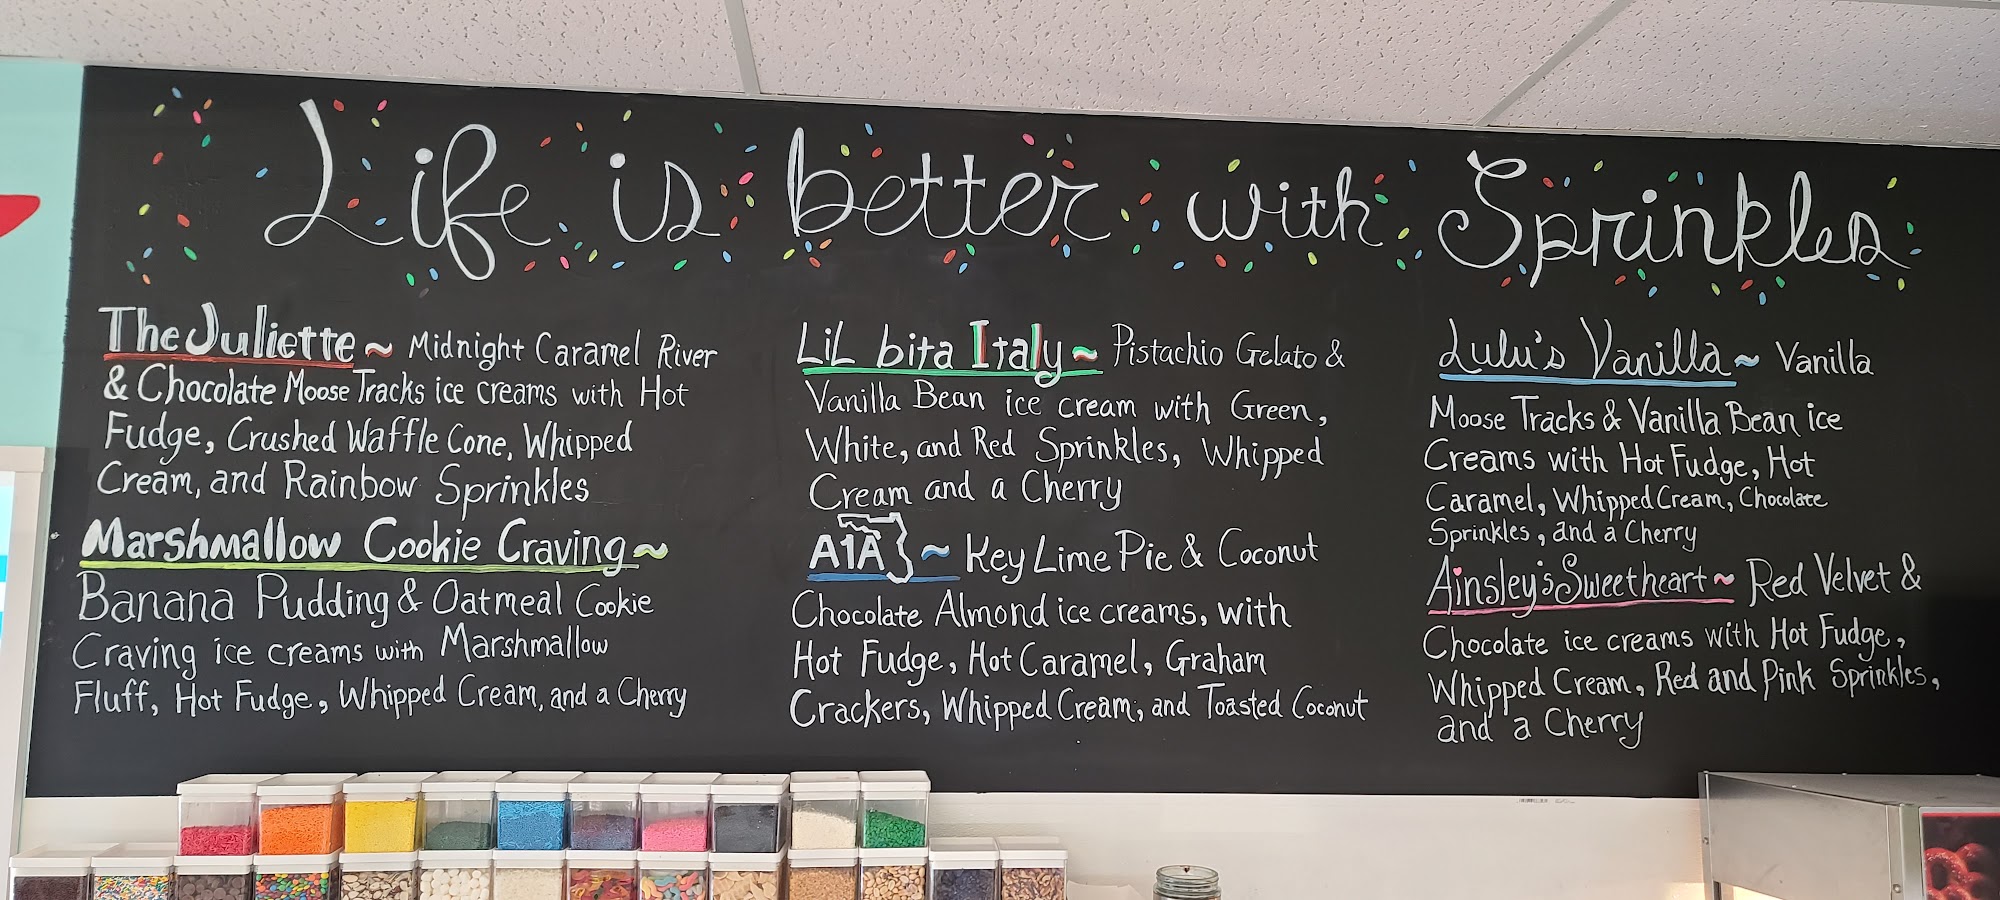 Life is better with Sprinkles
The Juliette ~ Midnight Caramel River
& Chocolate Moose Tracks ice creams with Hot
Fudge, Crushed Waffle Cone, Whipped
Cream, and Rainbow Sprinkles
Marshmallow Cookie Craving ~
Banana Pudding & Oatmeal Cookie
Craving ice creams with Marshmallow
Fluff, Hot Fudge, Whipped Cream, and a Cherry
LiL bita Italy ~ Pistachio Gelato &
Vanilla Bean ice cream with Green,
White, and Red Sprinkles, Whipped
Cream and a Cherry
A1A ~ Key Lime Pie & Coconut
Chocolate Almond ice creams, with
Hot Fudge, Hot Caramel, Graham
Crackers, Whipped Cream, and Toasted Coconut
Lulu's Vanilla ~ Vanilla
Moose Tracks & Vanilla Bean ice
Creams with Hot Fudge, Hot
Caramel, Whipped Cream, Chocolate
Sprinkles, and a Cherry
Ainsley's Sweetheart ~ Red Velvet &
Chocolate ice creams with Hot Fudge,
Whipped Cream, Red and Pink Sprinkles,
and a Cherry